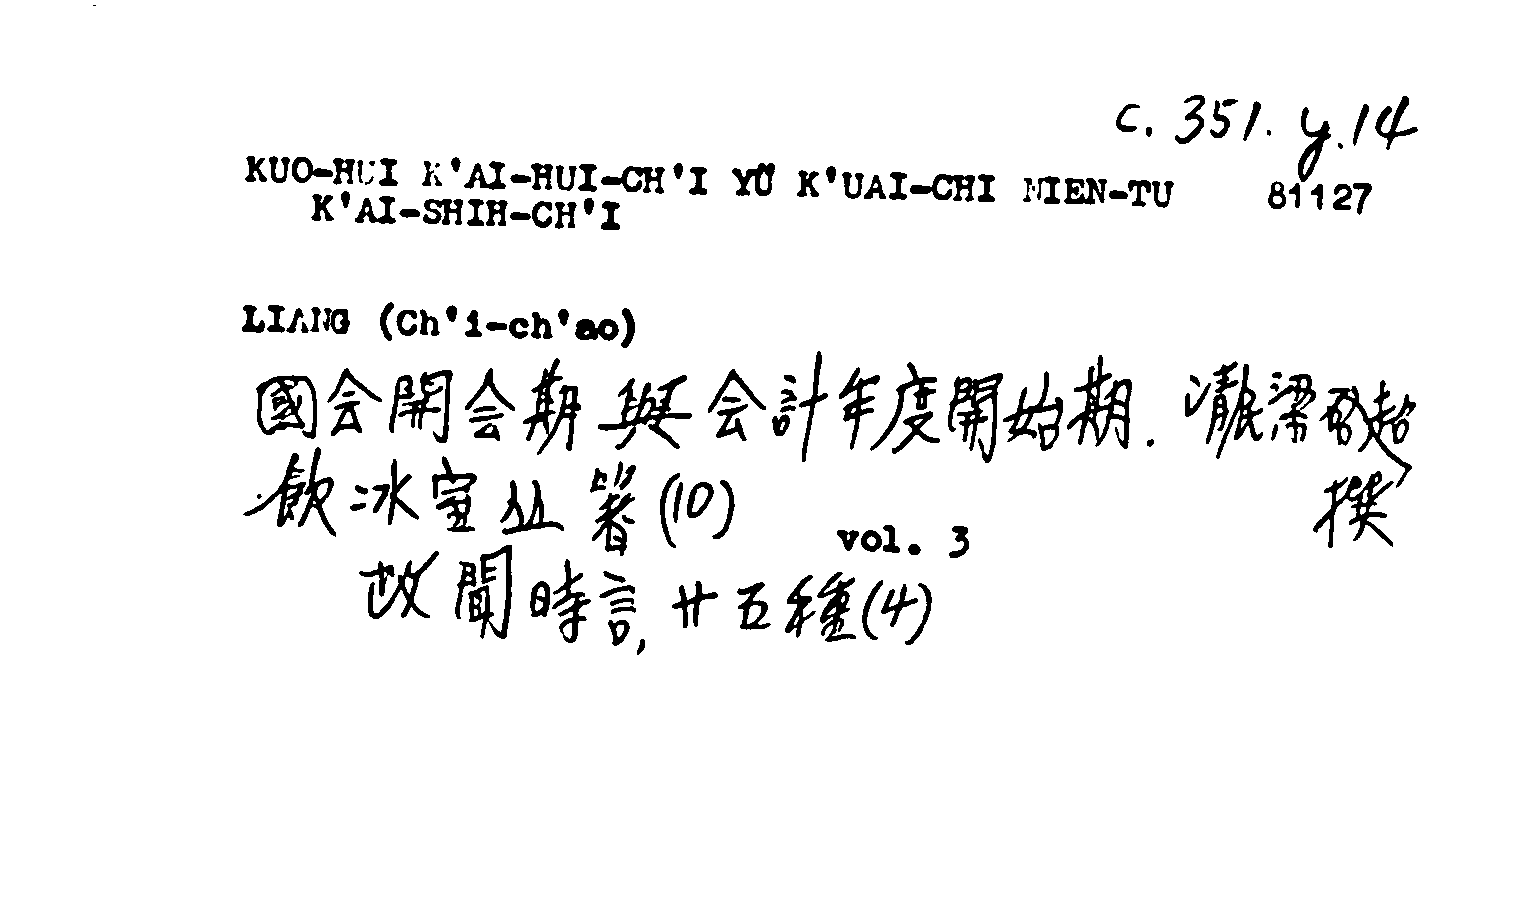 c. 351. y. 14
KUO-HUI K'AI-HUI-CH'I YÜ K'UAI-CHI NIEN-TU 81127
K'AI-SHIH-CH'I
LIANG (Ch'i-ch'ao)
國会開会期與会計年度開始期. 清民梁啟超
撰
飲冰室丛著(10) vol. 3
政聞時言, 廿五種(4)